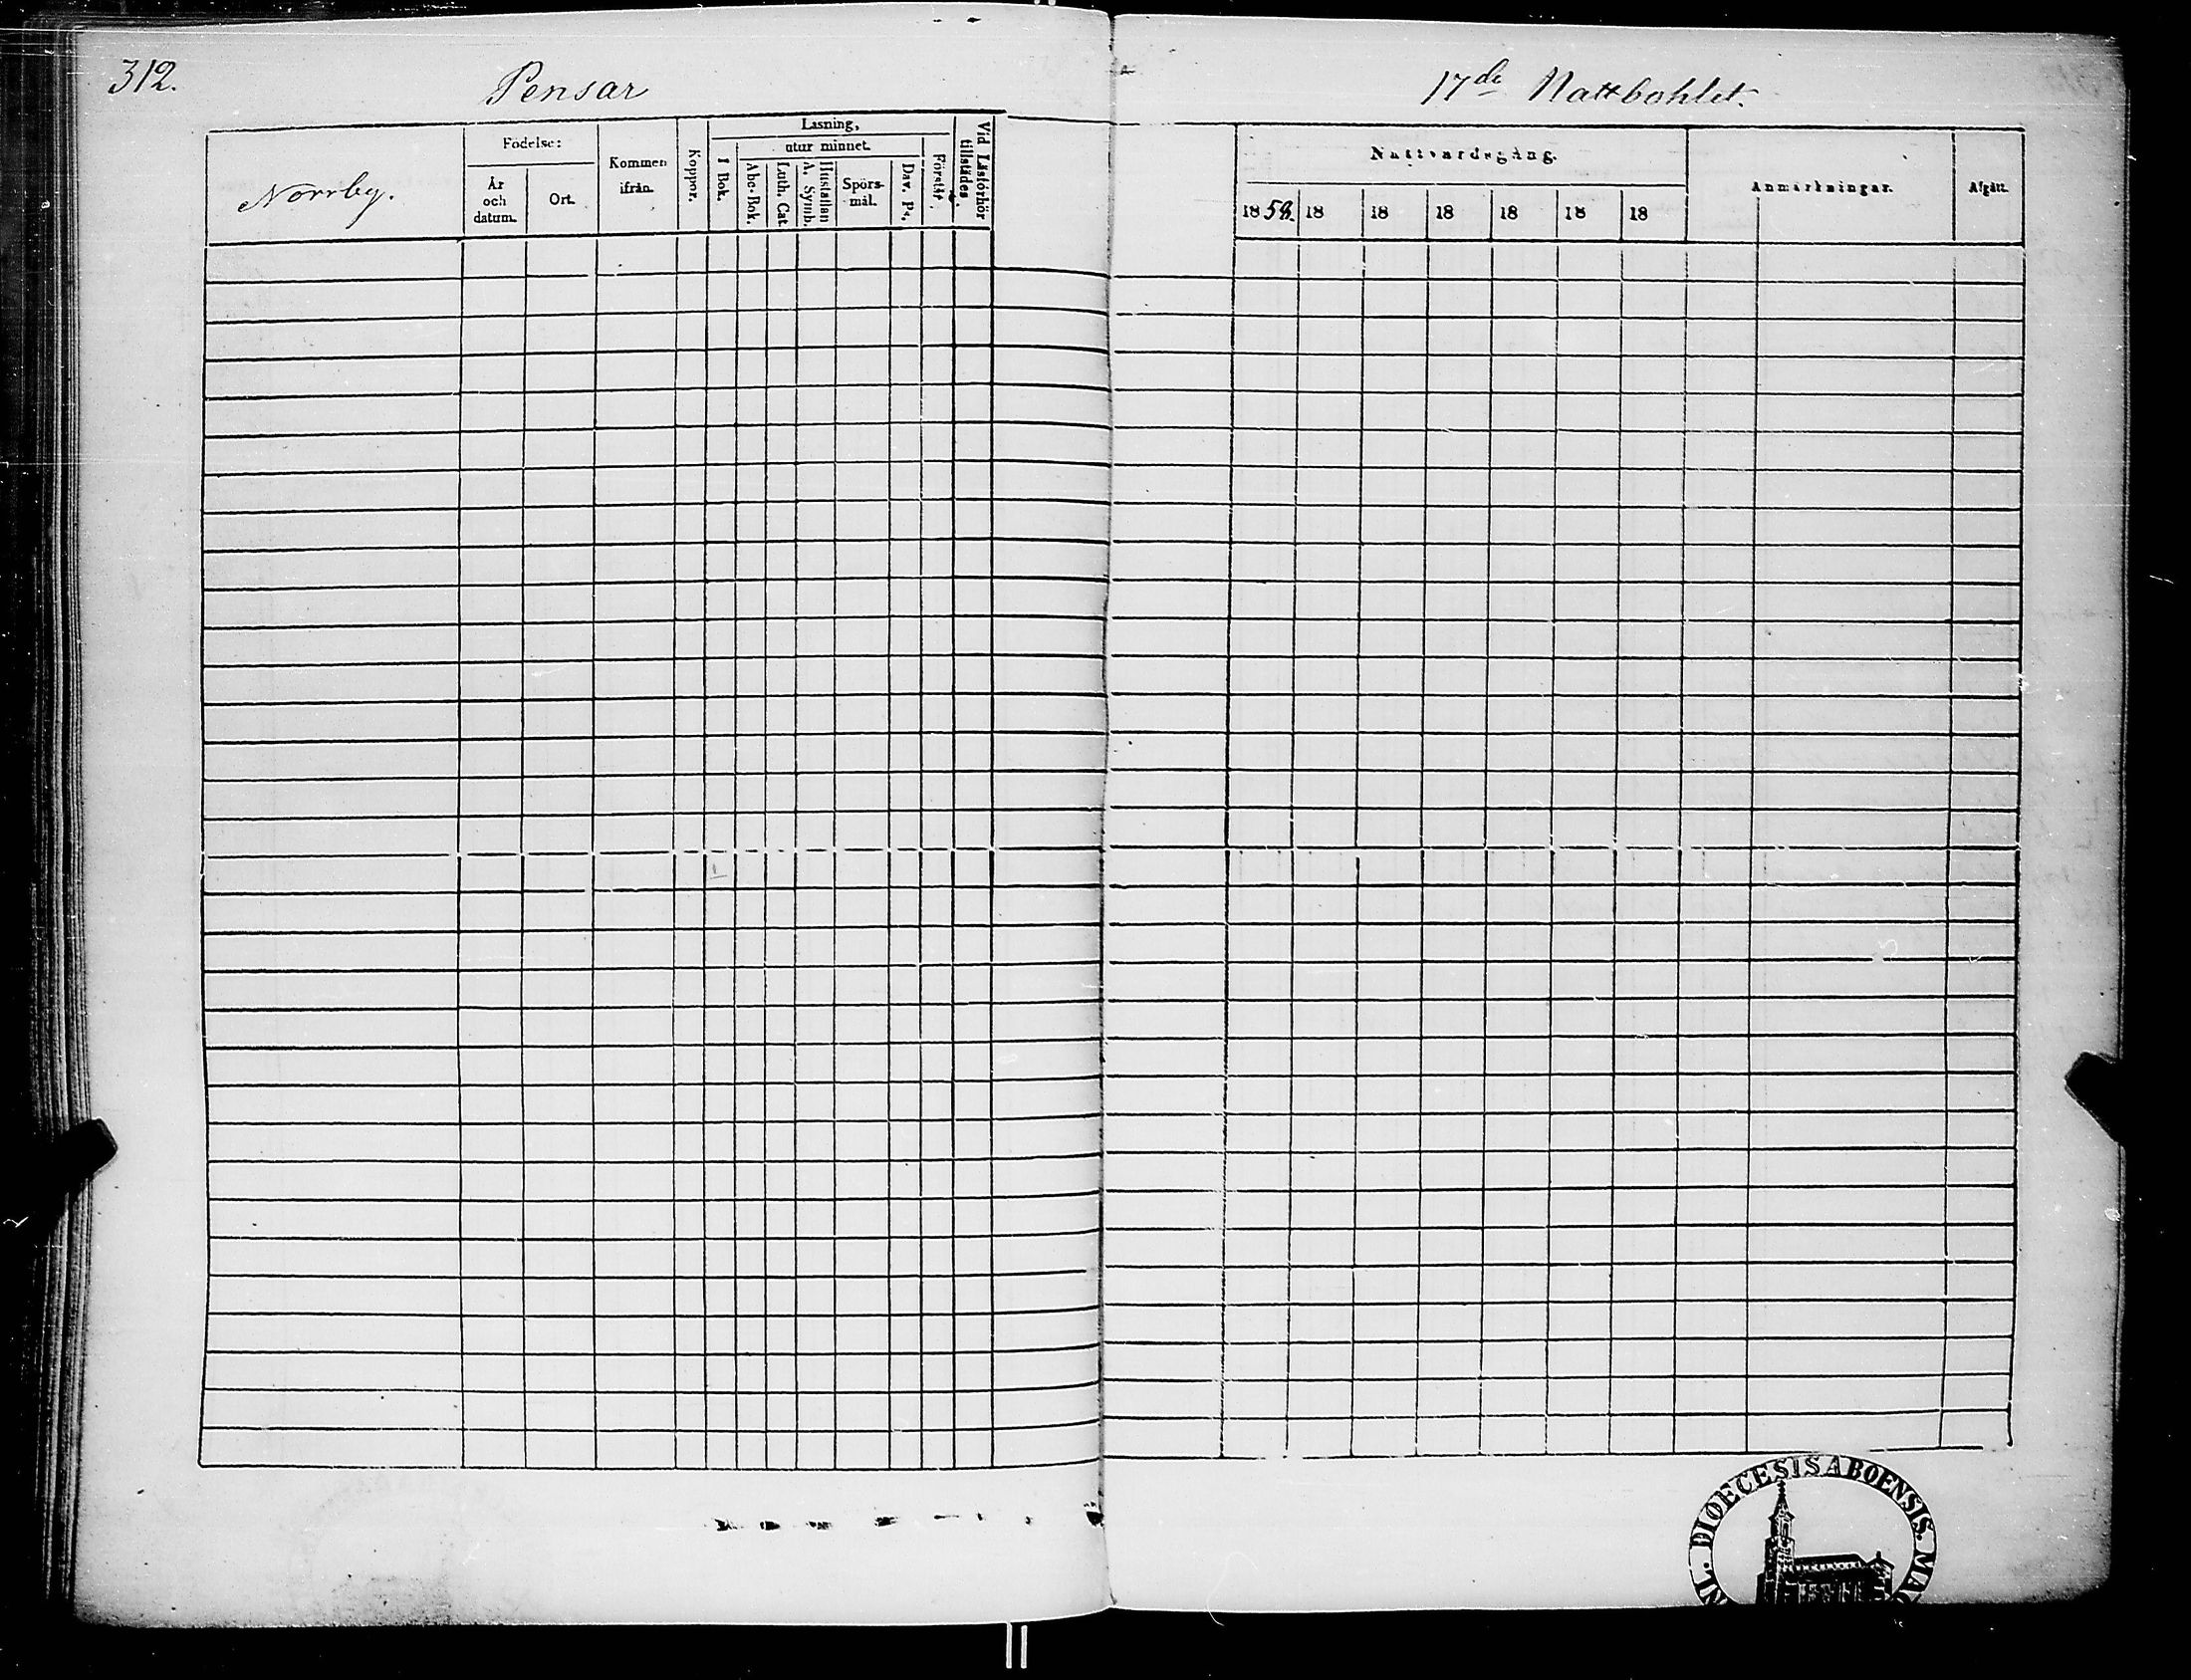 312.
Pensar
17de Nattbohlet.
Norrby.
Födelse:
År
och
datum.
Ort.
Kommen
ifrån.
Koppor.
Läsning,
utur minnet.
I Bok.
Abc-Bok.
Luth. Cat.
Hustaflan
A. Symb.
Spörs-
mål.
Dav. Ps.
Förstår
Vid Läsförhör
tillstädes.
Nattvardsgång.
1858. 18 18 18 18 18 18
Anmärkningar.
Afgått.
DIOECESIS ABOENSIS.